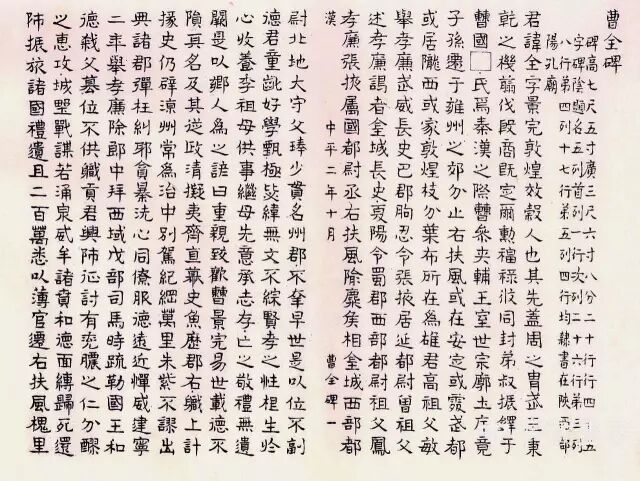 曹全碑
碑高七尺五寸廣三尺六寸八分二十行行四十五
字碑陰題名五列首列一行次列二十六行第三列
八行第四列十七行第五列四行均隸書在陝西郃
陽孔廟
君諱全字景完敦煌效穀人也其先蓋周之胄武王秉
乾之機翦伐殷商既定爾勳福祿攸同封弟叔振鐸于
曹國□氏焉秦漢之際曹參夾輔王室世宗廓土序竟
子孫遷于雍州之郊分止右扶風或在安定或處武都
或居隴西或家敦煌枝分葉布所在為雄君高祖父敏
舉孝廉武威長史巴郡朐忍令張掖居延都尉曾祖父
述孝廉謁者金城長史夏陽令蜀郡西部都尉祖父鳳
孝廉張掖屬國都尉丞右扶風隃麋矦相金城西部都
漢 中平二年十月 曹全碑一
尉北地大守父琫少貫名州郡不幸早世是以位不副
德君童齔好學甄極毖緯無文不綜賢孝之性根生於
心收養季祖母供事繼母先意承志存亡之敬禮無遺
闕是以鄉人為之諺曰重親致歡曹景完易世載德不
隕其名及其從政清擬夷齊直慕史魚歷郡右職上計
掾史仍辟涼州常為治中別駕紀綱萬里朱紫不謬出
典諸郡彈枉糾耶貪暴洗心同僚服德遠近憚威建寧
二年舉孝廉除郎中拜西域戊部司馬時疏勒國王和
德弒父篡位不供職貢君興師征討有兗膿之仁分醪
之惠攻城野戰謀若涌泉威牟諸賁和德面縛歸死還
師振旅諸國禮遺且二百萬悉以薄官遷右扶風槐里